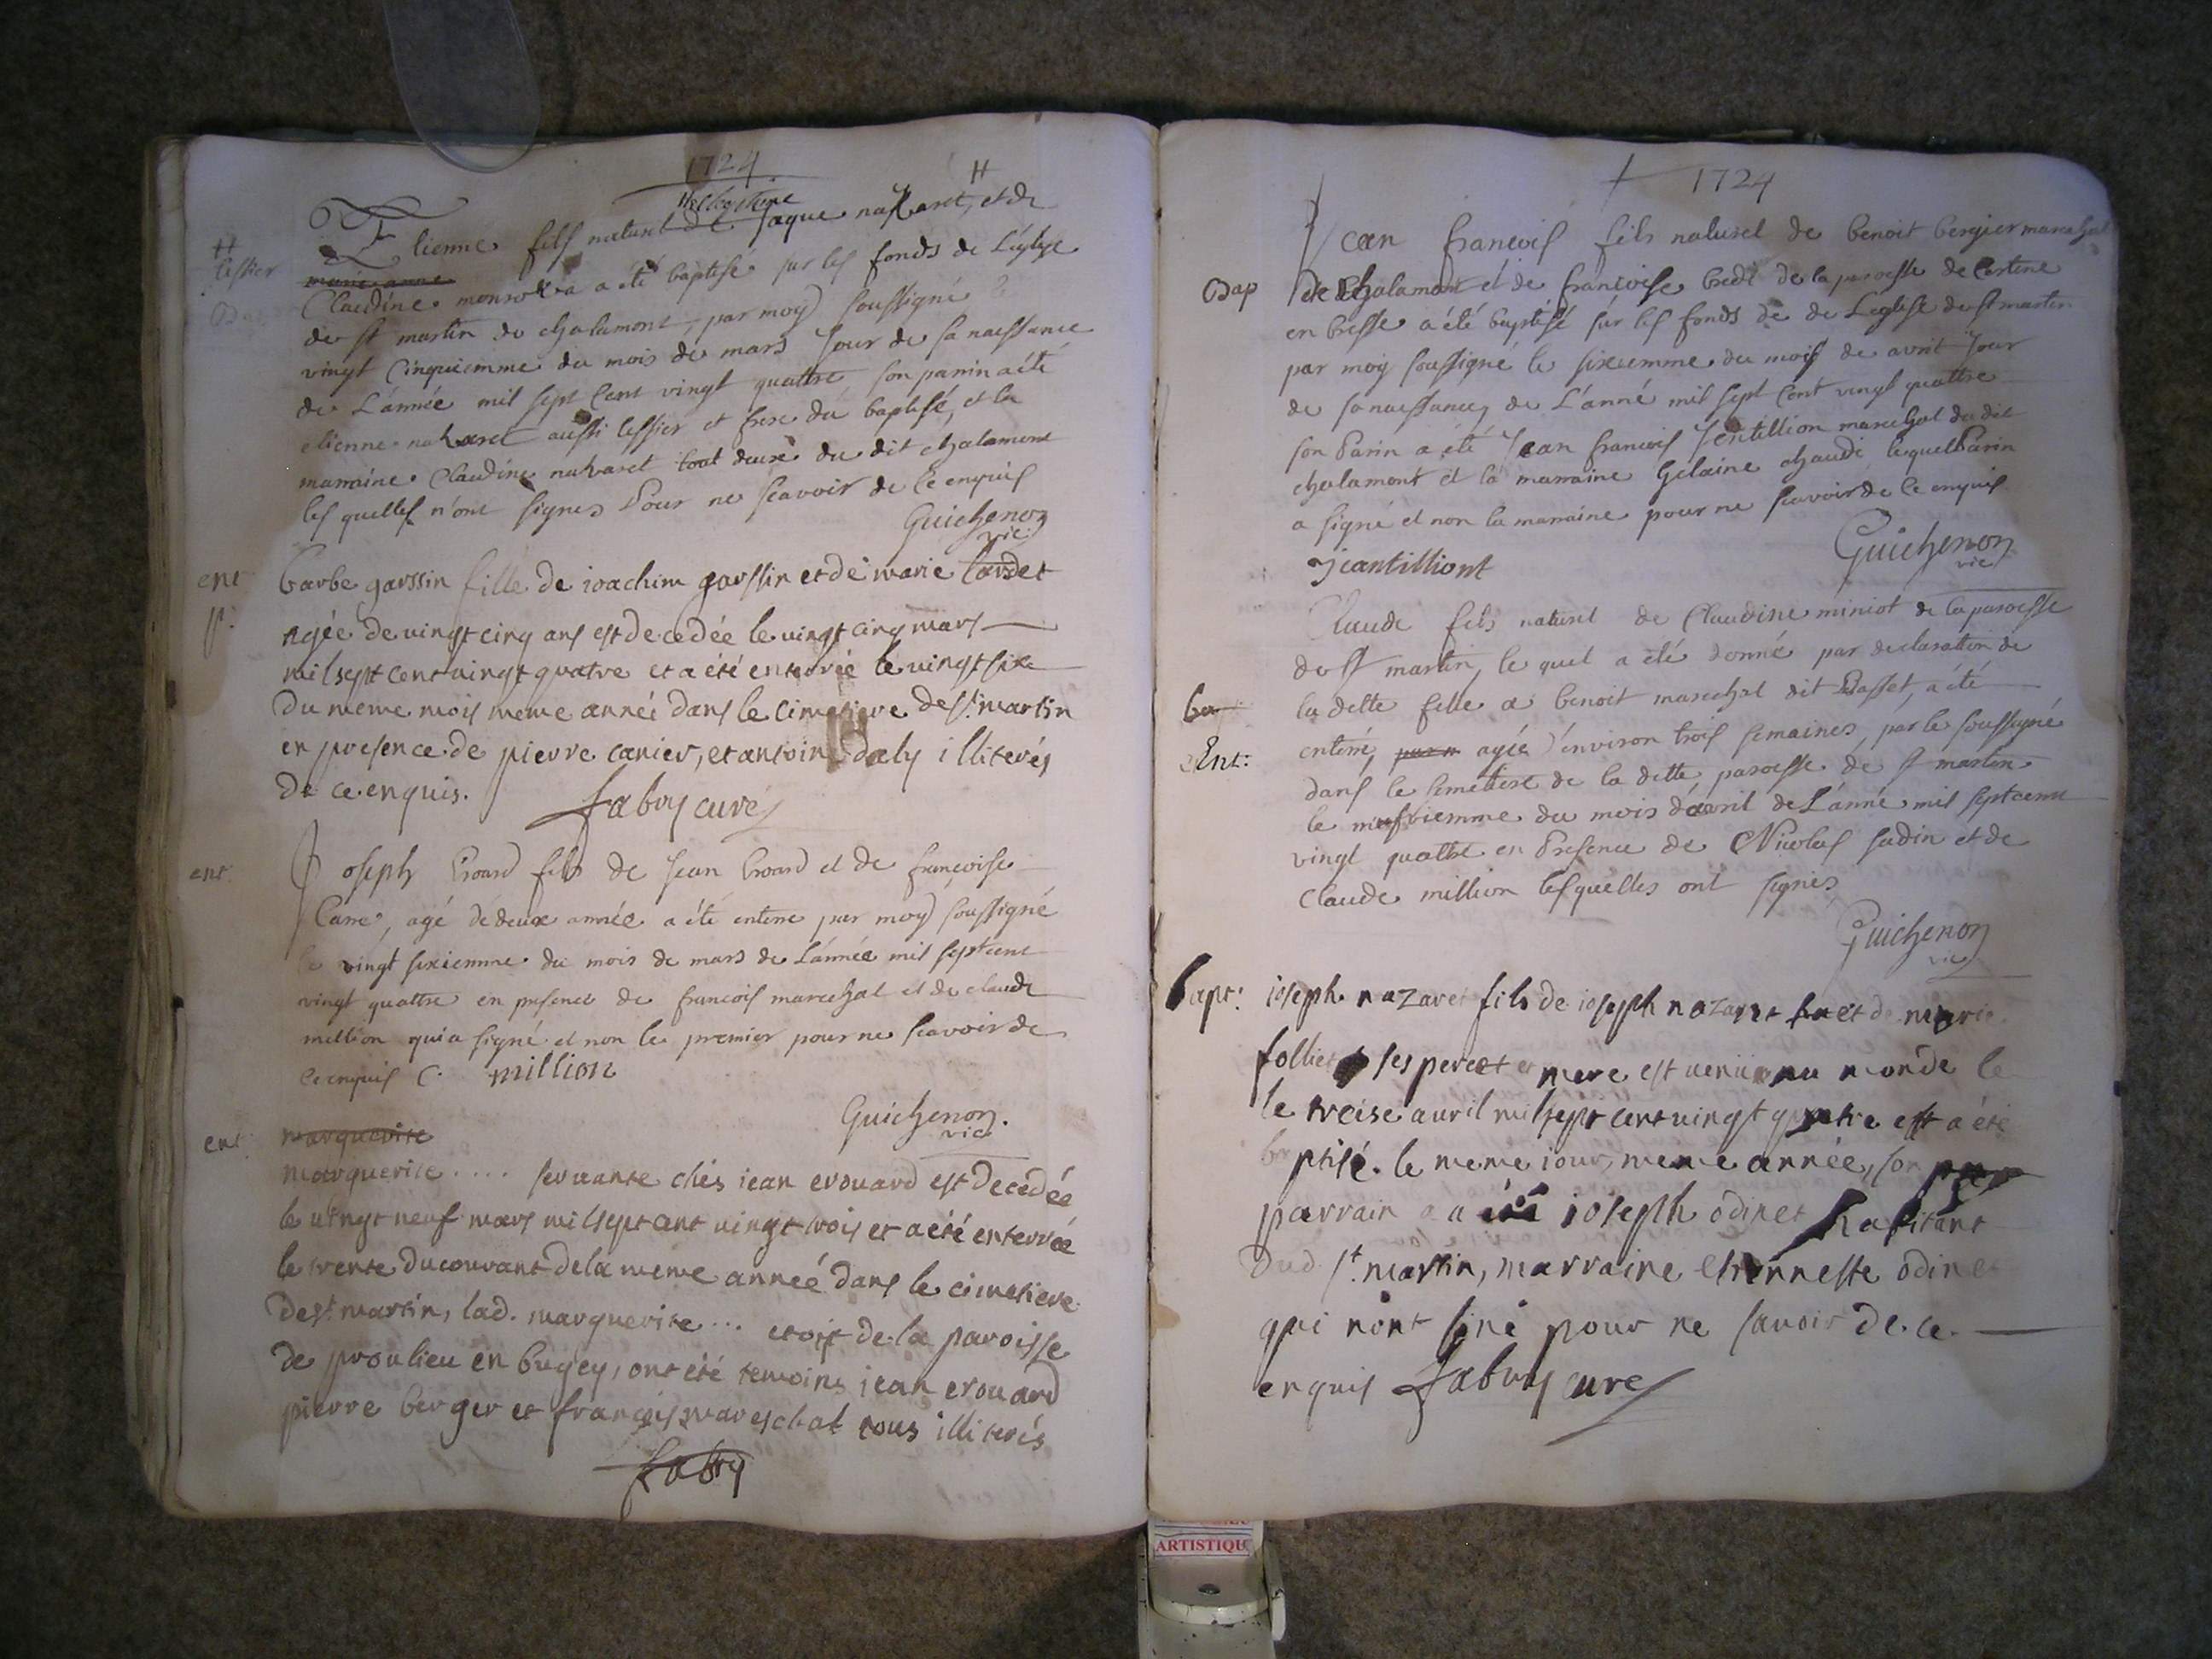 1724
H
Etienne fils naturel de Jaque nazaret, et de
H
tessier
marie anne
Claudine monro a été baptisé sur les fonds de L'église
de st martin de chalamont, par moy soussigné
vingt cinquiemme du mois de mars Jour de sa naissance
de L'année mil sept Cent vingt quattre, son parrin a été
etienne nazaret aussi tessier et frere du baptisé, et la
marraine Claudine nazaret tout deux du dit chalamont
lesquelles n'ont signes Pour ne scavoir de ce enquis
Guichenon
vic
ent
barbe garssin fille de ioachim garssin et de marie lardet
agée de vingt cinq ans est decedée le vingt cinq mars
mil sept cent vingt quatre et a été enterrée le vingt six
du meme mois meme année dans le cimetiere de st. martin
en presence de pierre canier, et antoine daly illiterés
de ce enquis.
fabry curé
ent
Joseph Eroard fils de Jean Eroard et de francoise
Carre, agé de deux année a été enterre par moy soussigné
le vingt sixiemme du mois de mars de L'année mil sept cent
vingt quattre en presence de francois marechal et de claude
million qui a signé et non le premier pour ne scavoir de
ce enquis C. million
Guichenon
vic
ent
marguerite
marguerite .... servante chés iean erouard est decedée
le vingt neuf mars mil sept cent vingt trois et a été enterrée
le trente du courant de la meme année dans le cimetiere
de st. martin, lad. marguerite ... etoit de la paroisse
de proulieu en bugey, ont été temoins iean erouard
pierre berger et francois mareschal tous illiterés
fabry
1724
Jean francois fils naturel de benoit bergier marechal
Bap
de Chalamont et de francoise bredi de la paroesse de Certine
en bresse a été baptisé sur les fonds de de L'eglise de st martin
par moy soussigné le sixiemme du mois de avril Jour
de sa naissance de L'anné mil sept Cent vingt quattre
son Parin a été Jean francois Jentillion marechal du dit
chalamont et la marraine Gelaine chaudi lequel Parin
a signé et non la marraine pour ne scavoir de ce enquis
Guichenon
vic
Jeantilliont
Claude fils naturel de Claudine miniot de la paroesse
de st martin, le quel a été donné par declaration de
ba
la dette fille a benoit marechal dit Basset, a été
Ent:
enterré, agée d'environ trois semaines, par le soussigné
dans le semettere de la dette paroesse de st martin
le neufviemme du mois d'avril de L'anné mil sept cent
vingt quattre en Presence de Nicolas sadin et de
Claude million lesquelles ont signés
Guichenon
vic
bapt:
ioseph nazaret fils de ioseph nazaret et de marie
folliet ses pere et mere est venu au monde le
le treise avril mil sept cent vingt quatre a été
baptisé. le meme iour, meme année, son
parrain a été ioseph odinet habitant
dud st. martin, marraine odinet
qui n'ont siné pour ne savoir de ce
enquis fabry curé
ARTISTIQU